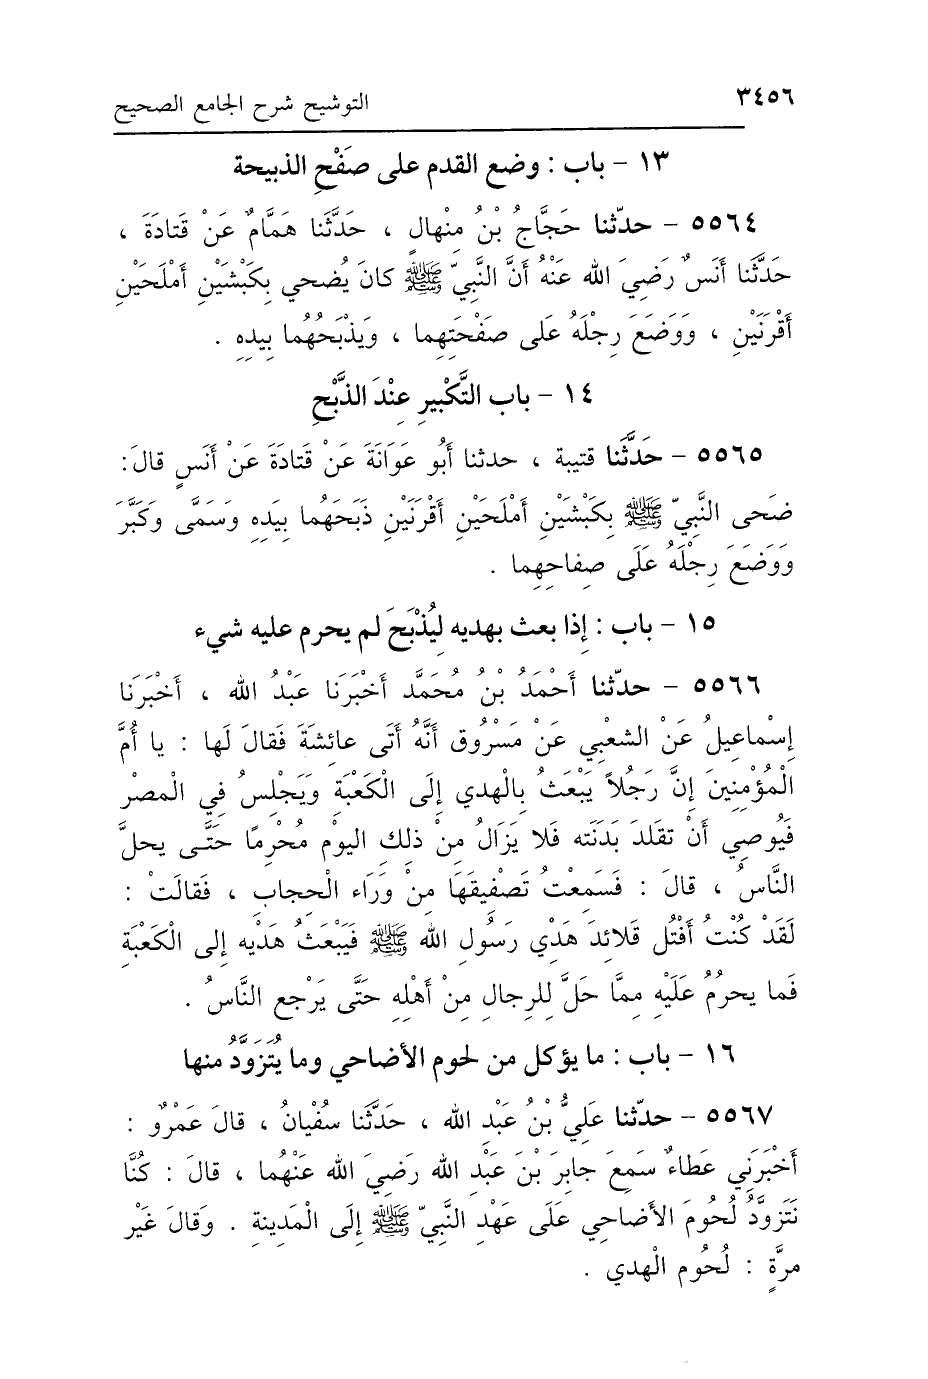 ٣٤٥٦ التوشيح شرح الجامع الصحيح
١٣ - باب : وضع القدم على صَفْحِ الذبيحة
٥٥٦٤ - حدّثنا حَجَّاجُ بْنُ مِنْهالٍ ، حَدَّثَنا هَمَّامٌ عَنْ قَتادَةَ ،
حَدَّثَنا أَنَسٌ رَضِيَ الله عَنْهُ أَنَّ النَّبِيّ ﷺ كانَ يُضحي بِكَبْشَيْنِ أَمْلَحَيْنِ
أَقْرَنَيْنِ ، وَوَضَعَ رِجْلَهُ عَلى صَفْحَتِهِما ، وَيَذْبَحُهُما بِيدِهِ .
١٤ - باب التَّكْبِيرِ عِنْدَ الذَّبْحِ
٥٥٦٥ - حَدَّثَنا قتيبة ، حدثنا أَبُو عَوَانَةَ عَنْ قَتادَةَ عَنْ أَنَسٍ قالَ :
ضَحى النَّبِيّ ﷺ بِكَبْشَيْنِ أَمْلَحَيْنِ أَقْرَنَيْنِ ذَبَحَهُما بِيَدِهِ وَسَمَّى وَكَبَّرَ
وَوَضَعَ رِجْلَهُ عَلَى صِفاحِهِما .
١٥ - باب : إذا بعث بهديه لِيُذْبَحَ لم يحرم عليه شيء
٥٥٦٦ - حدّثنا أَحْمَدُ بْنُ مُحَمَّد أَخْبَرَنا عَبْدُ الله ، أَخْبَرَنا
إِسْماعِيلُ عَنْ الشعْبِي عَنْ مَسْرُوق أَنَّهُ أَتَى عائِشَةَ فَقالَ لَها : يا أُمَّ
الْمُؤْمِنِينَ إِنَّ رَجُلاً يَبْعَثُ بِالْهدي إِلَى الْكَعْبَةِ وَيَجْلِسُ فِي الْمصْر
فَيُوصِي أَنْ تقلدَ بَدَنَته فَلا يَزَالُ مِنْ ذلِك اليوْم مُحْرِمًا حَتَّى يحلَّ
النَّاسُ ، قالَ : فَسَمِعْتُ تَصْفِيقَهَا مِنْ وَرَاء الْحجاب ، فَقالَتْ :
لَقَدْ كُنْتُ أَفْتُل قَلائِدَ هَدْي رَسُولِ الله ﷺ فَيَبْعَثُ هَدْيه إلى الْكَعْبَةِ
فَما يحرُمُ عَلَيْهِ مِمَّا حَلَّ لِلرِجالِ مِنْ أَهْلِهِ حَتَّى يَرْجع النَّاسُ .
١٦ - باب : ما يؤكل من لحوم الأضاحي وما يُتَزَوَّدُ منها
٥٥٦٧ - حدّثنا عَلَيُّ بْنُ عَبْدِ الله ، حَدَّثَنا سُفْيانُ ، قالَ عَمْرٌو :
أَخْبَرَنِي عَطاءٌ سَمِعَ جابِرَ بْنَ عَبْدِ الله رَضِيَ الله عَنْهُما ، قالَ : كُنَّا
نَتَزوَّدُ لُحُومَ الأَضاحِي عَلَى عَهْدِ النَّبِيّ ﷺ إِلَى الْمَدِينة . وَقالَ غَيْر
مرَّةٍ : لُحُوم الْهدي .